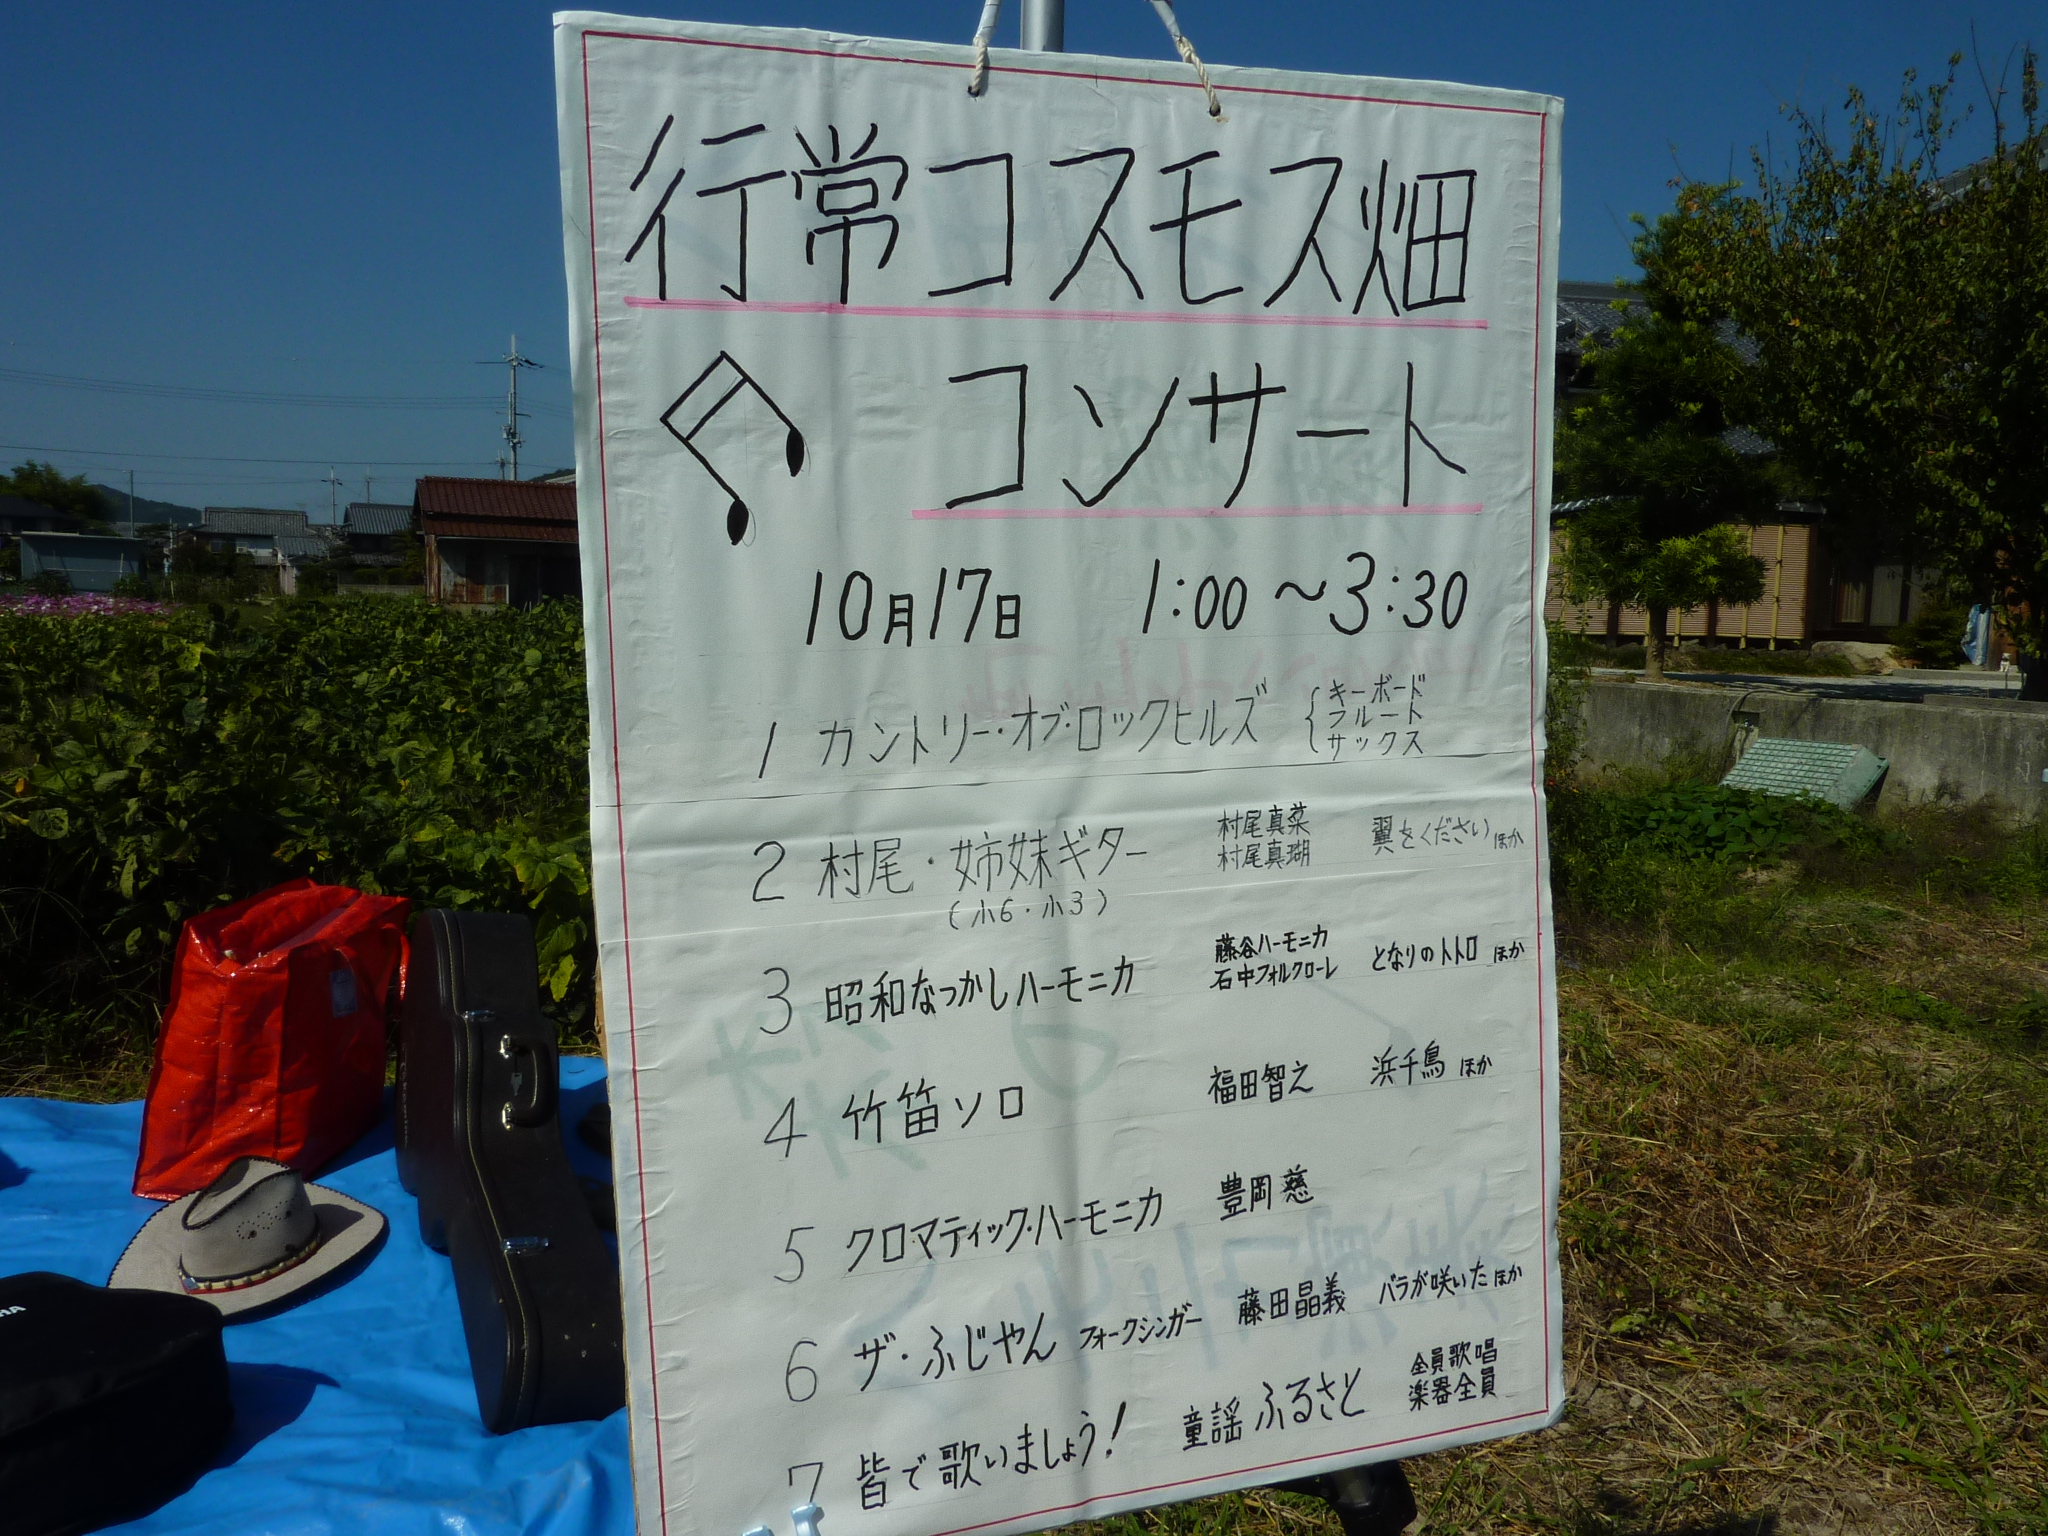 行常コスモス畑
コンサート
10月17日 1:00～3:30
1 カントリー・オブ・ロックヒルズ { キーボード
フルート
サックス
2 村尾・姉妹ギター 村尾真菜 翼をください ほか
村尾真瑚
(小6・小3)
3 昭和なつかしハーモニカ 藤谷ハーモニカ となりのトトロ ほか
石中フォルクローレ
4 竹笛ソロ 福田智之 浜千鳥 ほか
5 クロマティック・ハーモニカ 豊岡慈
6 ザ・ふじやん フォークシンガー 藤田晶義 バラが咲いた ほか
7 皆で歌いましょう! 童謡 ふるさと 全員歌唱
楽器全員